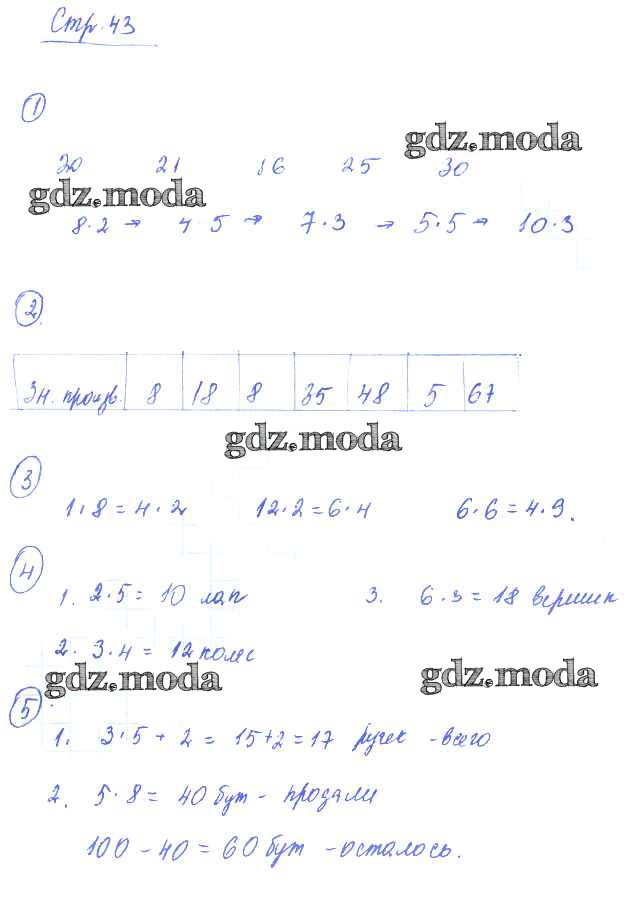 Стр. 43
1
20 21 16 25 30
gdz.moda
gdz.moda
8·2 → 4·5 → 7·3 → 5·5 → 10·3
2.
Зн. произв. 8 18 8 35 48 5 67
gdz.moda
3
1·8 = 4·2 12·2 = 6·4 6·6 = 4·9.
4
1. 2·5 = 10 лап 3. 6·3 = 18 вершин
2. 3·4 = 12 колес
gdz.moda gdz.moda
5
1. 3·5 + 2 = 15+2 = 17 ручек - всего
2. 5·8 = 40 бут - продали
100 - 40 = 60 бут - осталось.